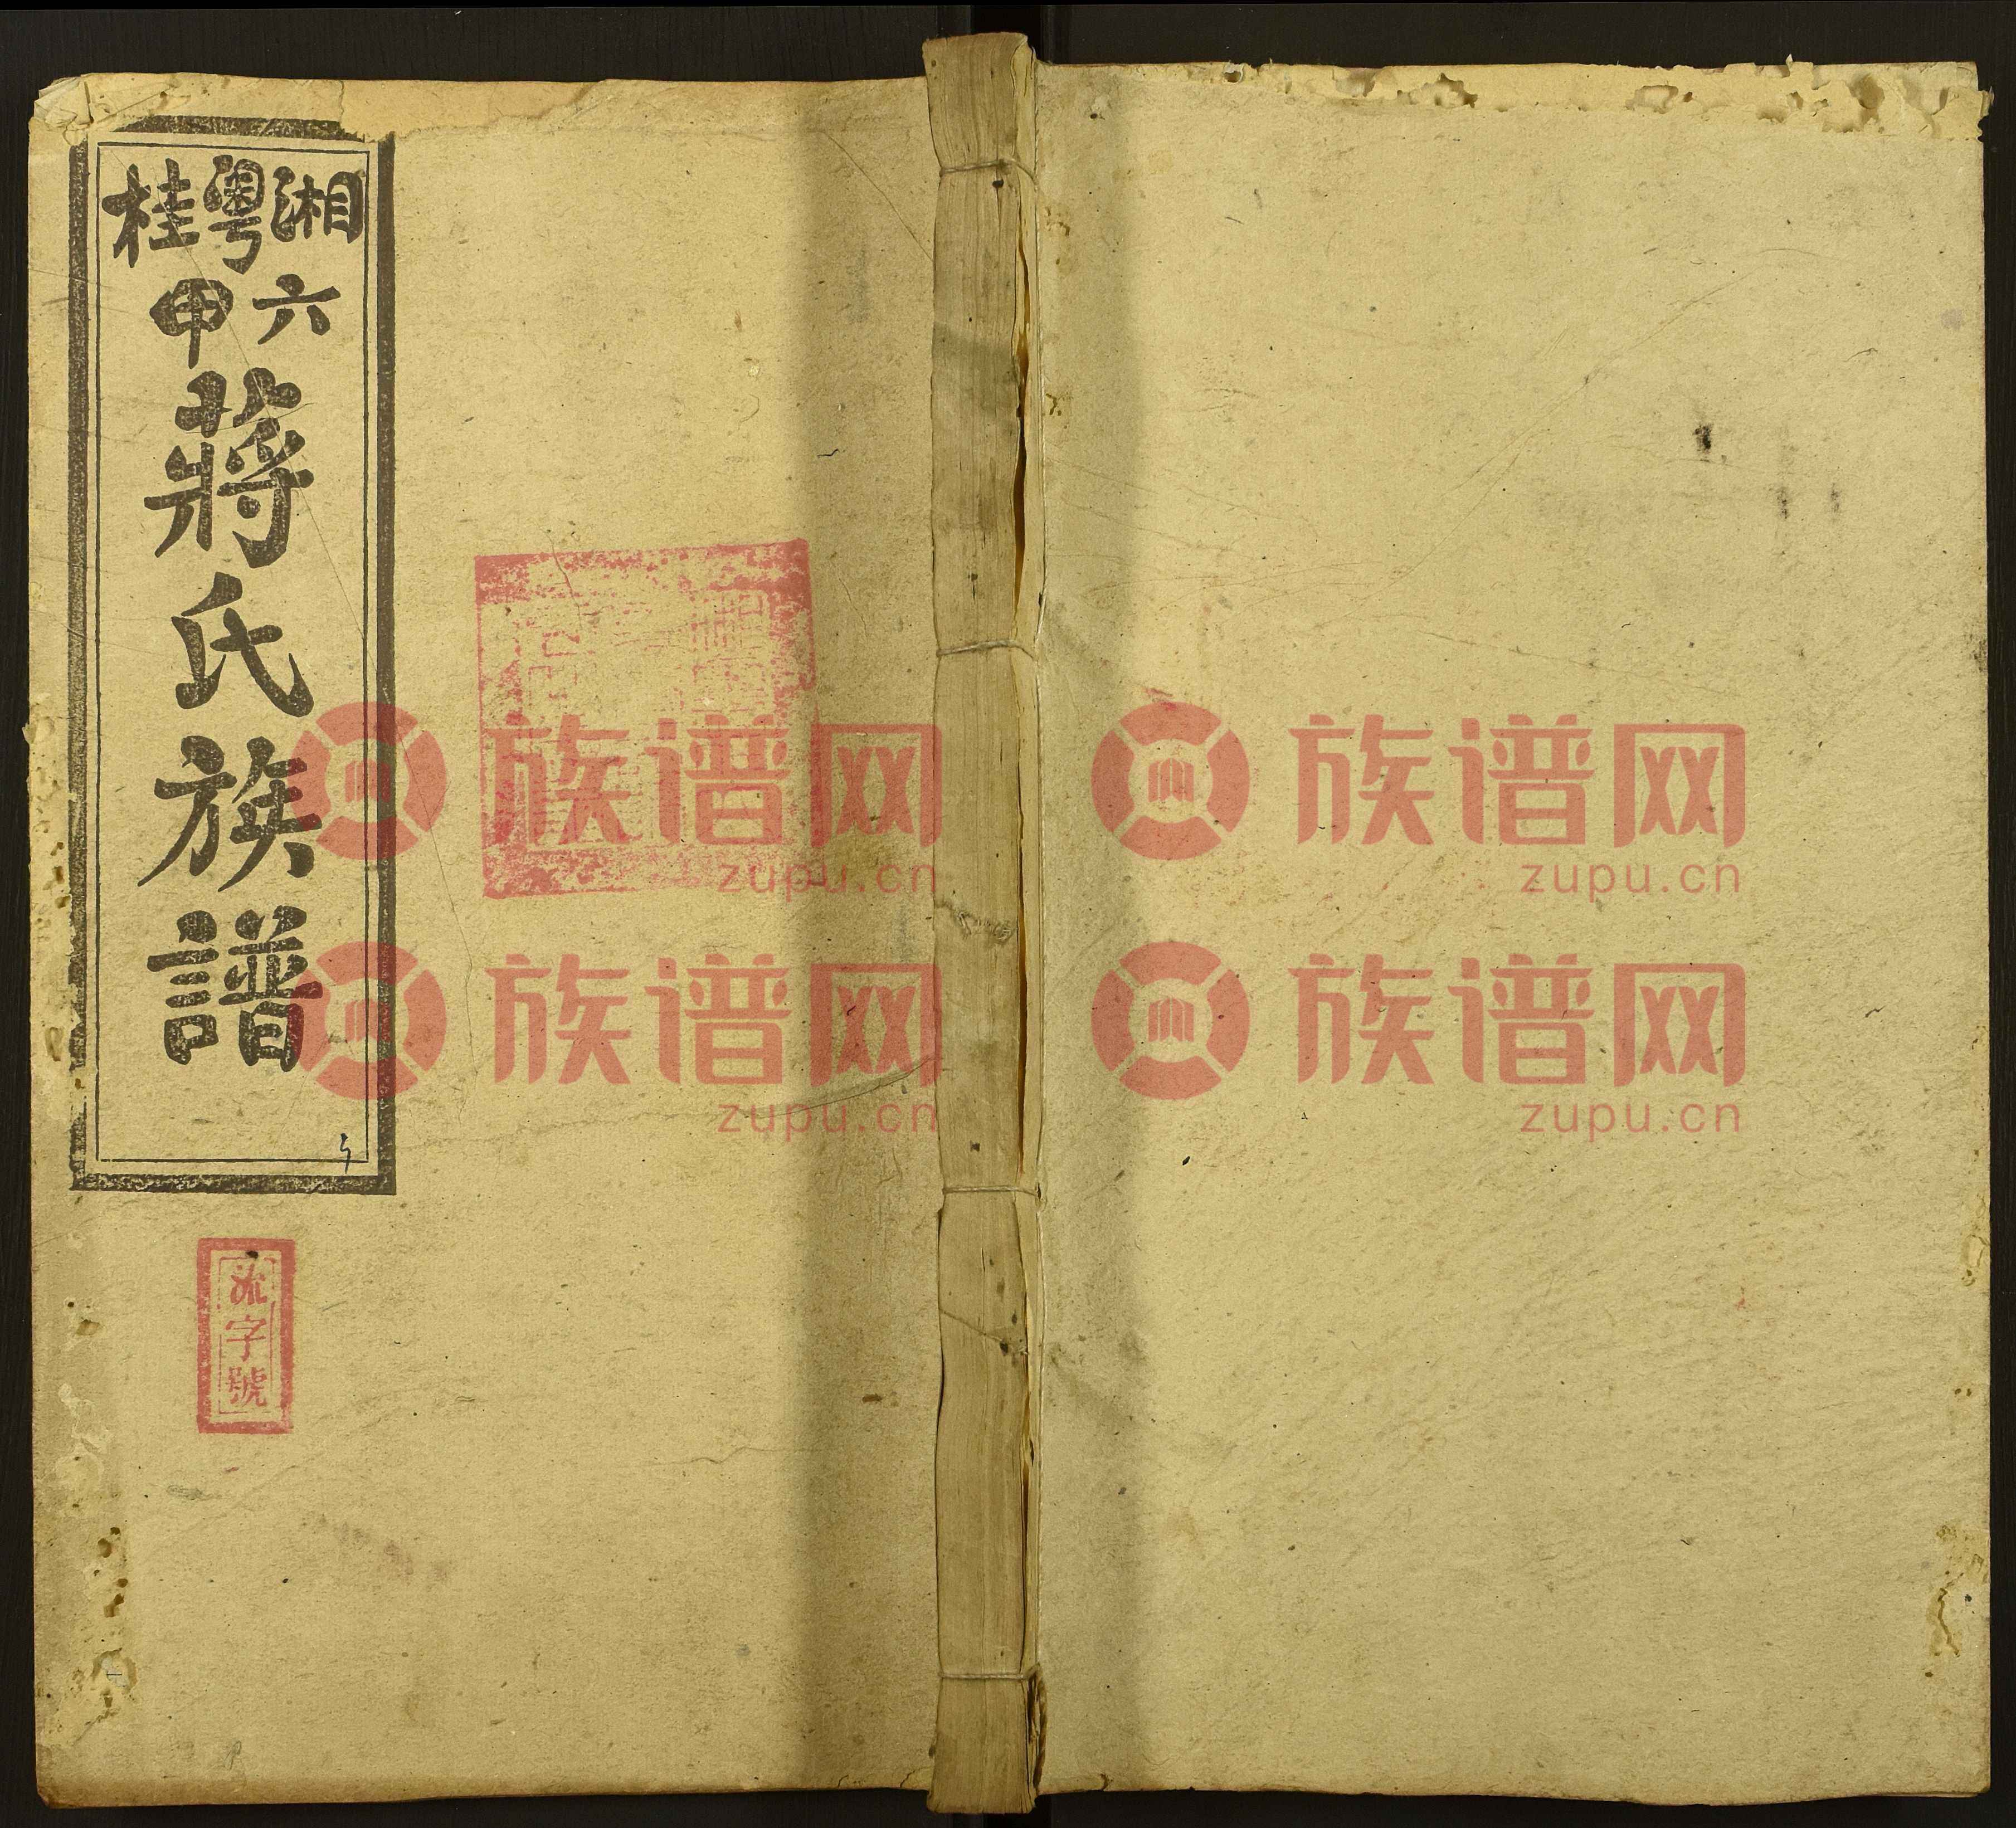 湘粵桂
六甲
蔣氏族譜
字號
族谱网
zupu.cn
族谱网
zupu.cn
族谱网
zupu.cn
族谱网
zupu.cn